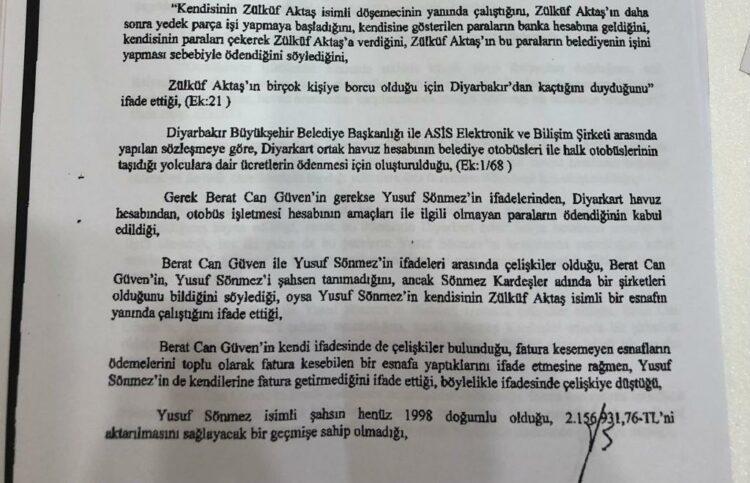 "Kendisinin Zülküf Aktaş isimli döşemecinin yanında çalıştığını, Zülküf Aktaş'ın daha
sonra yedek parça işi yapmaya başladığını, kendisine gösterilen paraların banka hesabına geldiğini,
kendisinin paraları çekerek Zülküf Aktaş'a verdiğini, Zülküf Aktaş'ın bu paraların belediyenin işini
yapması sebebiyle ödendiğini söylediğini,
Zülküf Aktaş'ın birçok kişiye borcu olduğu için Diyarbakır'dan kaçtığını duyduğunu"
ifade ettiği, (Ek:21 )
Diyarbakır Büyükşehir Belediye Başkanlığı ile ASİS Elektronik ve Bilişim Şirketi arasında
yapılan sözleşmeye göre, Diyarkart ortak havuz hesabının belediye otobüsleri ile halk otobüslerinin
taşıdığı yolculara dair ücretlerin ödenmesi için oluşturulduğu, (Ek:1/68 )
Gerek Berat Can Güven'in gerekse Yusuf Sönmez'in ifadelerinden, Diyarkart havuz
hesabından, otobüs işletmesi hesabının amaçları ile ilgili olmayan paraların ödendiğinin kabul
edildiği,
Berat Can Güven ile Yusuf Sönmez'in ifadeleri arasında çelişkiler olduğu, Berat Can
Güven'in, Yusuf Sönmez'i şahsen tanımadığını, ancak Sönmez Kardeşler adında bir şirketleri
olduğunu bildiğini söylediği, oysa Yusuf Sönmez'in kendisinin Zülküf Aktaş isimli bir esnafın
yanında çalıştığını ifade ettiği,
Berat Can Güven'in kendi ifadesinde de çelişkiler bulunduğu, fatura kesemeyen esnafların
ödemelerini toplu olarak fatura kesebilen bir esnafa yaptıklarını ifade etmesine rağmen, Yusuf
Sönmez'in de kendilerine fatura getirmediğini ifade ettiği, böylelikle ifadesinde çelişkiye düştüğü,
Yusuf Sönmez isimli şahsın henüz 1998 doğumlu olduğu, 2.156.931,76-TL'ni
aktarılmasını sağlayacak bir geçmişe sahip olmadığı,